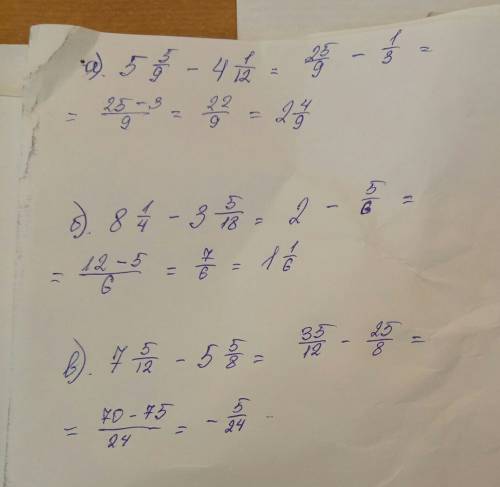 а). 5 5/9 - 4 1/12 = 25/9 - 1/3 =
= 25-3/9 = 22/9 = 2 4/9
б). 8 1/4 - 3 5/18 = 2 - 5/6 =
= 12-5/6 = 7/6 = 1 1/6
в). 7 5/12 - 5 5/8 = 35/12 - 25/8 =
= 70-75/24 = - 5/24